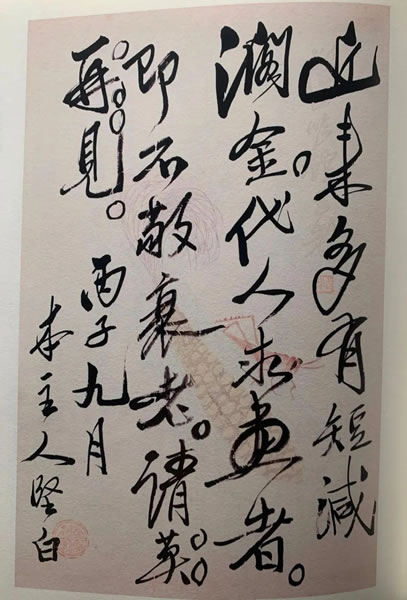 近来多有短減
潤金。代人求畫者。
即不敬衰老。請莫。。
再。。。見。
丙子九月
本主人堅白